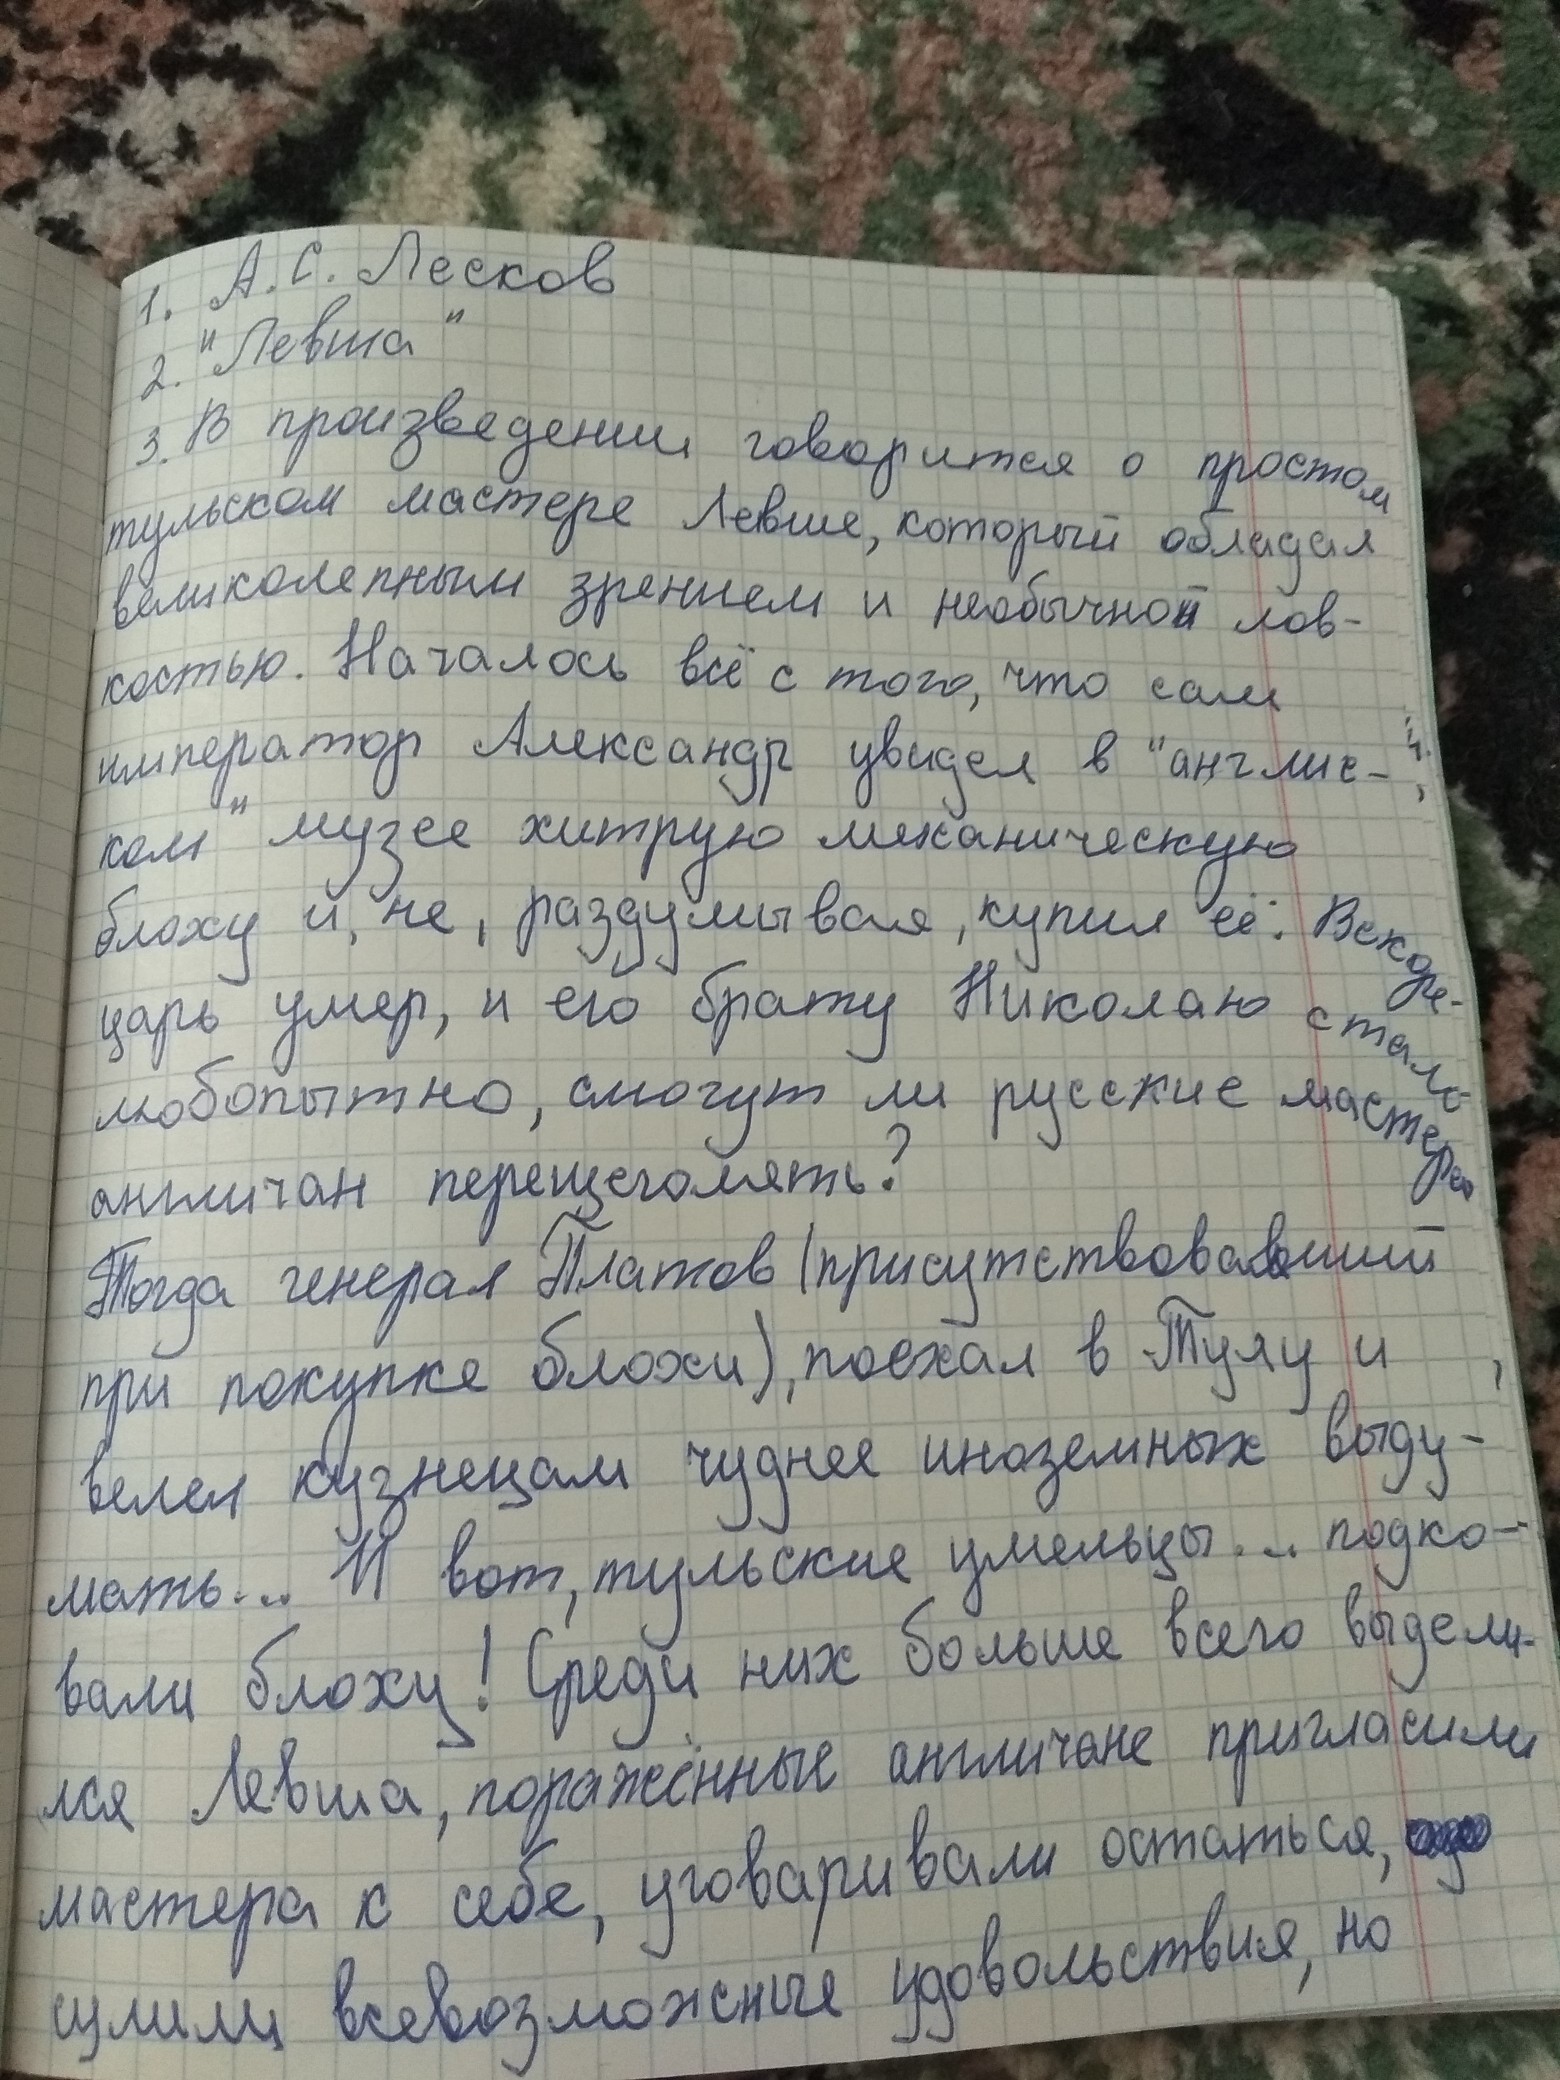 1. А.С. Лесков
2. "Левша"
3. В произведении говорится о простом
тульском мастере Левше, который обладал
великолепным зрением и необычной лов-
костью. Началось всё с того, что сам
император Александр увидел в "англис-
ком" музее хитрую механическую
блоху и, не, раздумывая, купил её. Вскоре
царь умер, и его брату Николаю стало
любопытно, смогут ли русские мастера
англичан перещеголять?
Тогда генерал Платов (присутствовавший
при покупке блохи), поехал в Тулу и
велел кузнецам чуднее иноземных выду-
мать... И вот, тульские умельцы... подко-
вали блоху! Среди них больше всего выдели-
лся Левша, поражённые англичане пригласили
мастера к себе, уговаривали остаться,
сулили всевозможные удовольствия, но